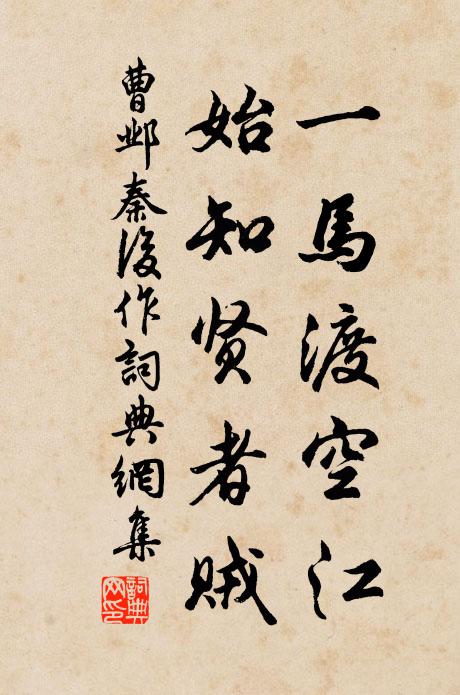 一馬渡空江
始知贤者贼
曹邺秦後作詞典網集
詞典网印